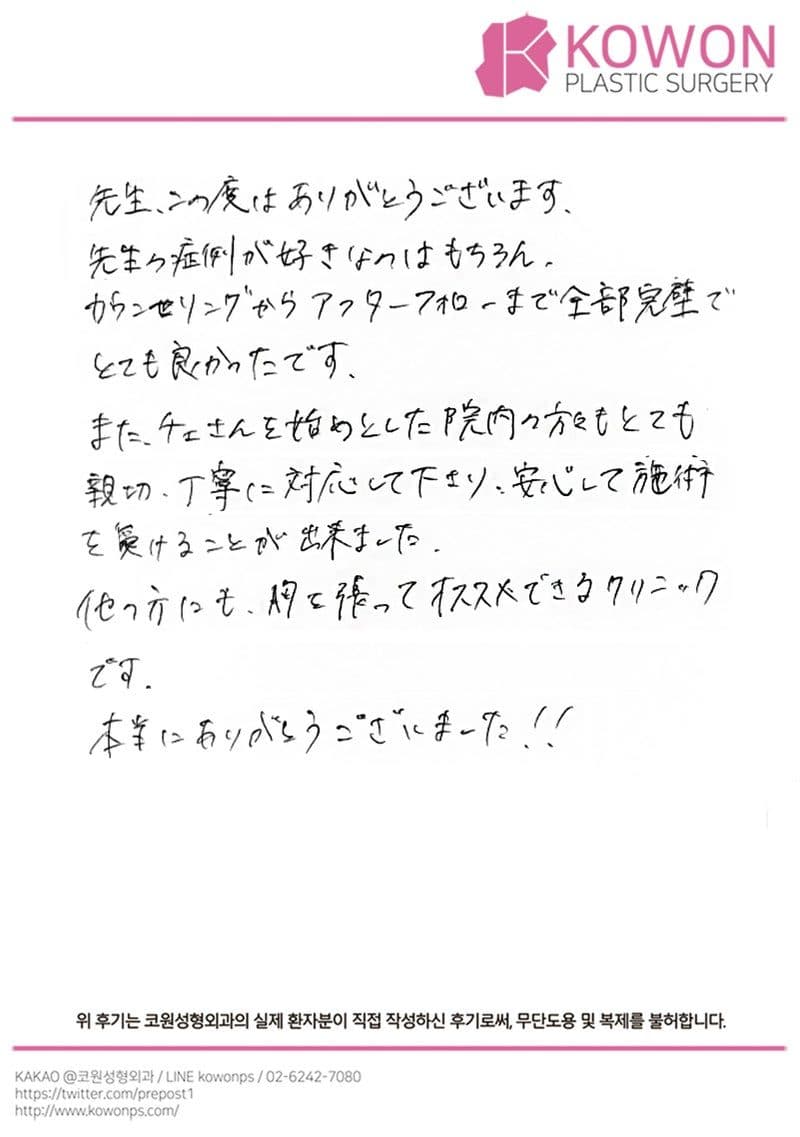 KOWON
PLASTIC SURGERY
先生、この度はありがとうございます、
先生の症例が好きなのはもちろん、
カウンセリングからアフターフォローまで全部完璧で
とても良かったです、
また、チェさんを始めとした院内の方々もとても
親切、丁寧に対応して下さり、安心して施術
を受けることが出来ました。
他の方にも、胸を張ってオススメできるクリニック
です。
本当にありがとうございました!!
위 후기는 코원성형외과의 실제 환자분이 직접 작성하신 후기로써, 무단도용 및 복제를 불허합니다.
KAKAO @코원성형외과 / LINE kowonps / 02-6242-7080
https://twitter.com/prepost1
http://www.kowonps.com/